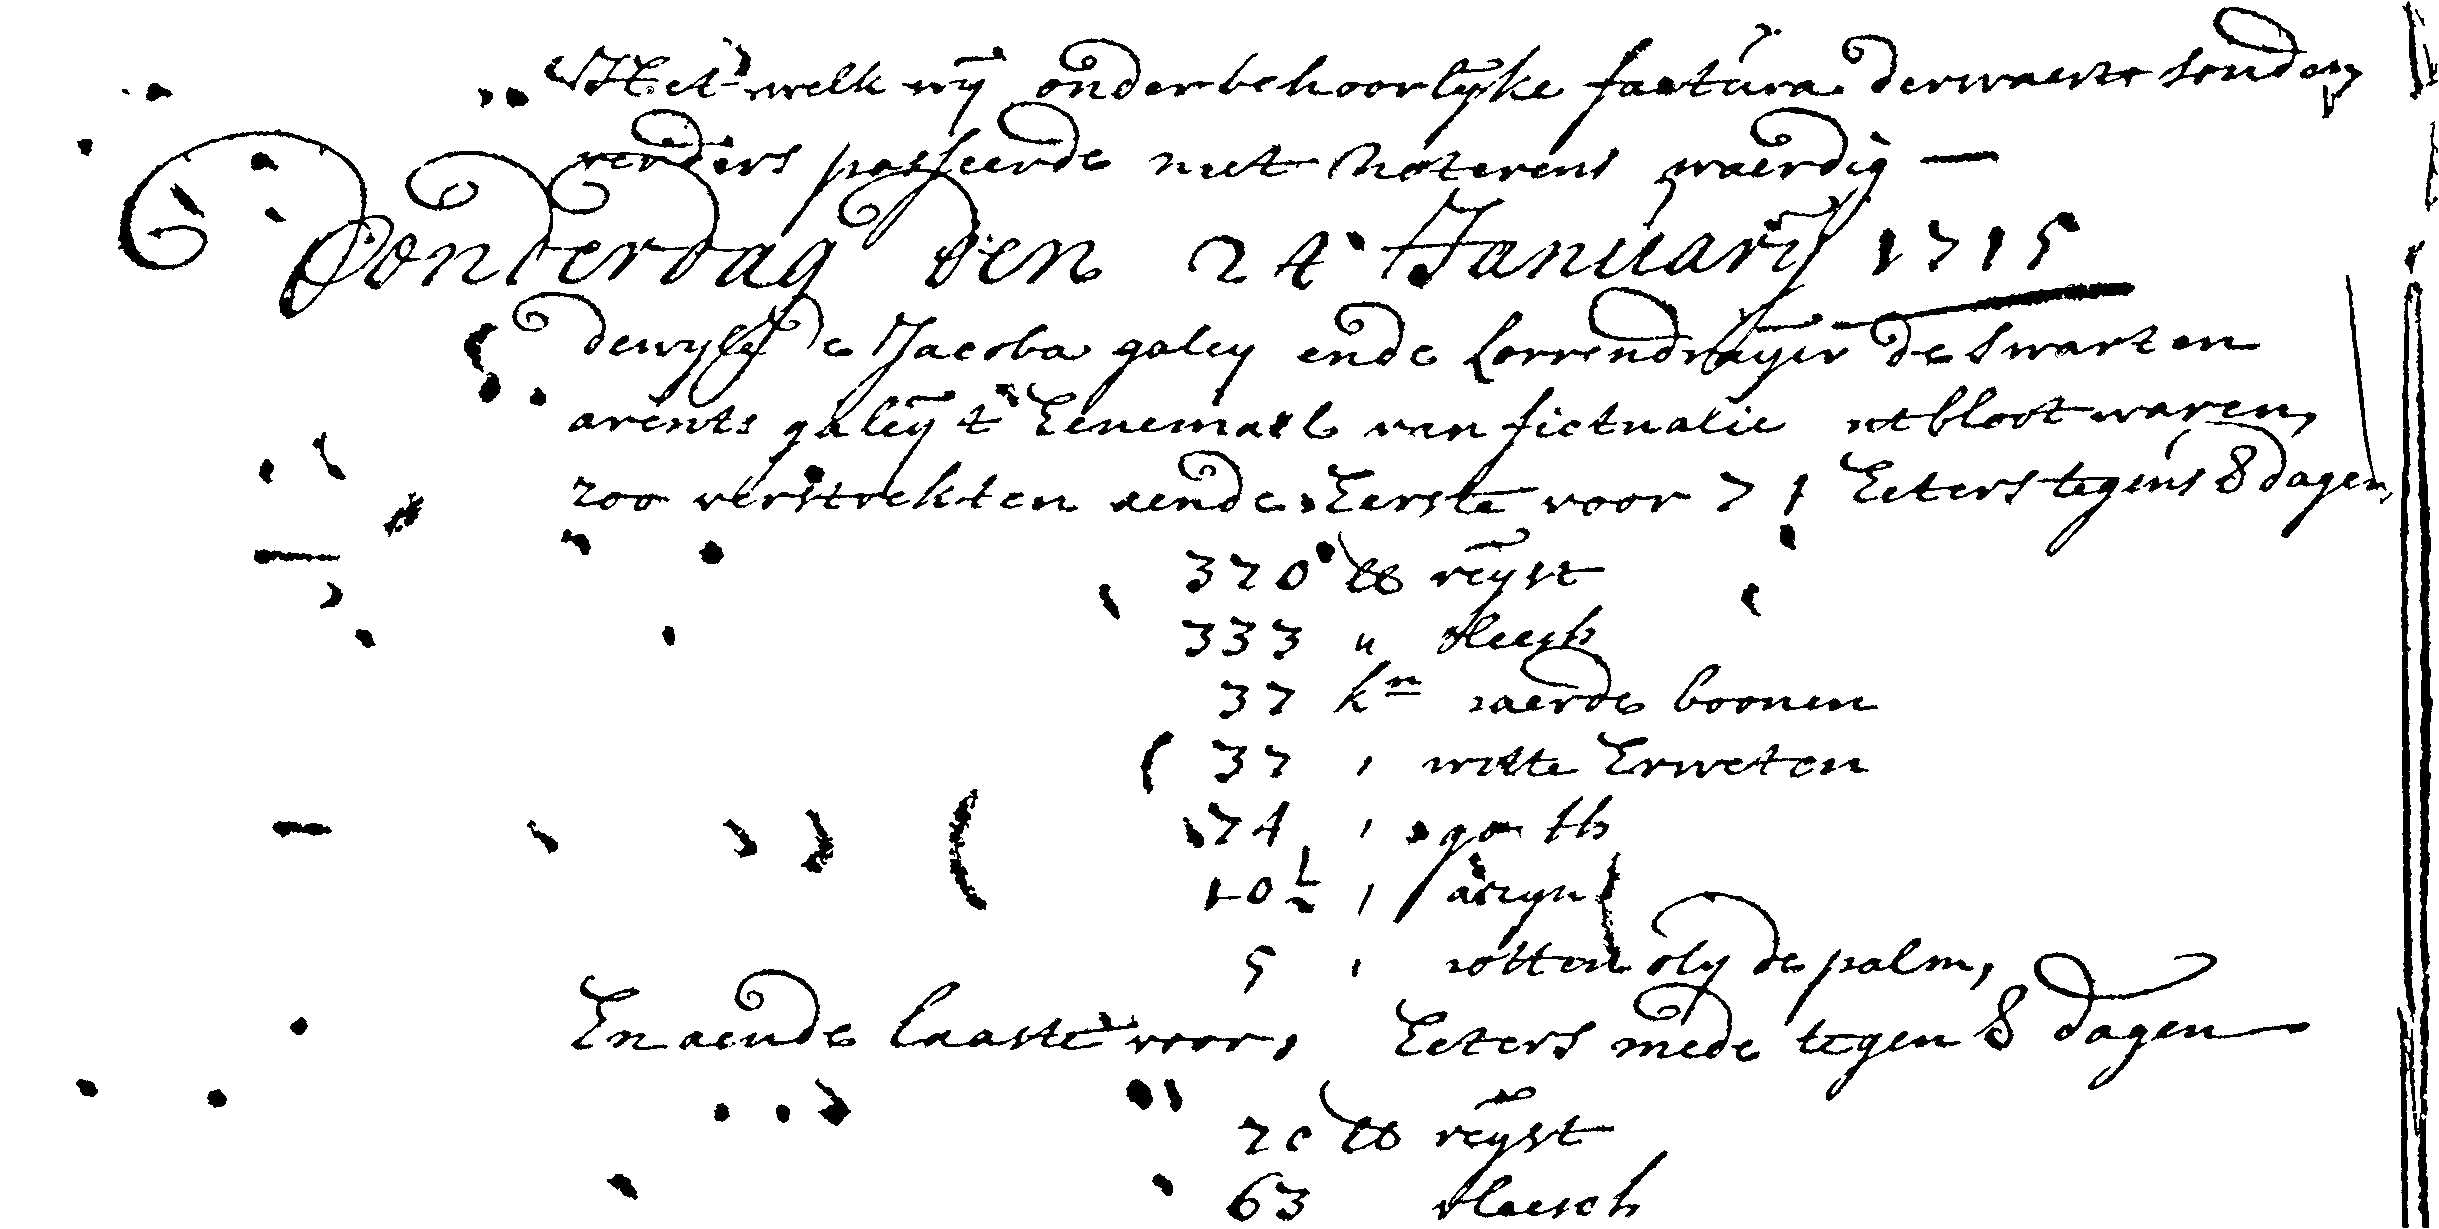 Het welk wij onder behoorlijke factura derwaerts sonden
verders passeerde niet noterens waerdig —
Donderdag den 24 Januarij 1715
dewijle de Jacoba galey ende Lorrendraijer de Swarten
arents galeij t' Eenemael van fictualie ontbloot waren,
zoo verstrekten aende Eerste voor 71 Eeters tegens 8 dagen,
370 lb reijst
333 " vleesch
37 kn paerde boonen
37 , witte Erweten
74 , gorth
10½ , azijn
5 , potten olij de palm,
En aende Laaste voor, Eeters mede tegen 8 dagen
70 lb reijst
63 vleesch